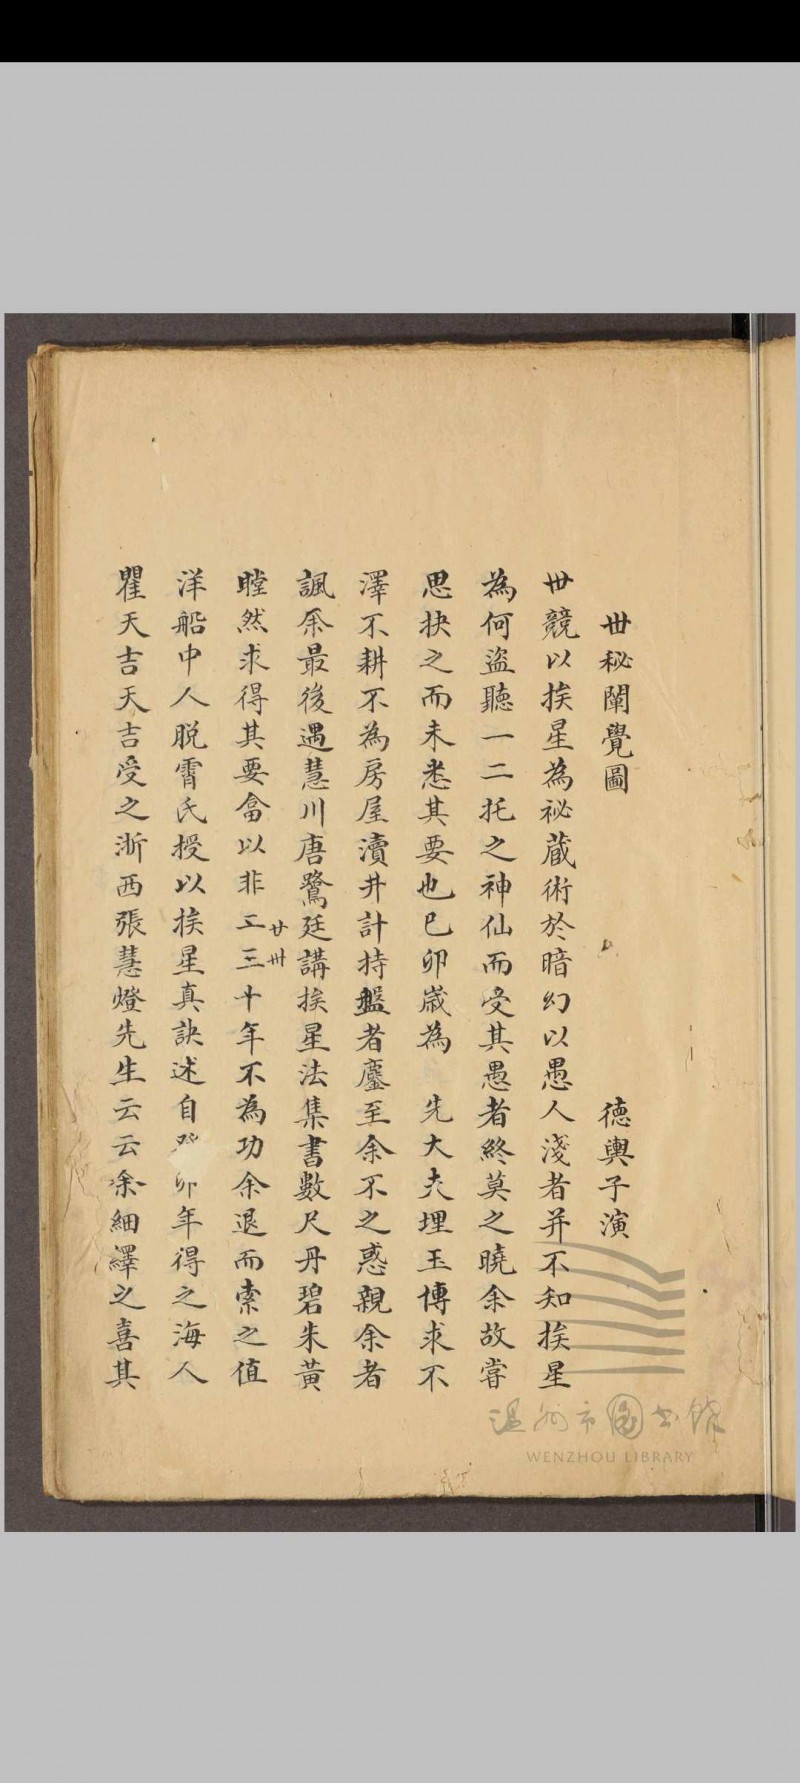 世秘闡覺圖　德輿子演
世競以挨星為祕蔵術於暗幻以愚人淺者并不知挨星
為何盜聽一二托之神仙而受其愚者終莫之曉余故嘗
思抉之而未悉其要也己卯歲為　先大夫埋玉博求不
澤不耕不為房屋瀆井計持盤者鏖至余不之惑親余者
諷余最後遇慧川唐鷺廷講挨星法集書數尺丹碧朱黃
瞠然求得其要畣以非二三十年不為功余退而索之值
廿卅
洋船中人脫霄氏授以挨星真訣述自 卯年得之海人
瞿天吉天吉受之浙西張慧燈先生云云余細繹之喜其
温州市図书馆
WENZHOU LIBRARY